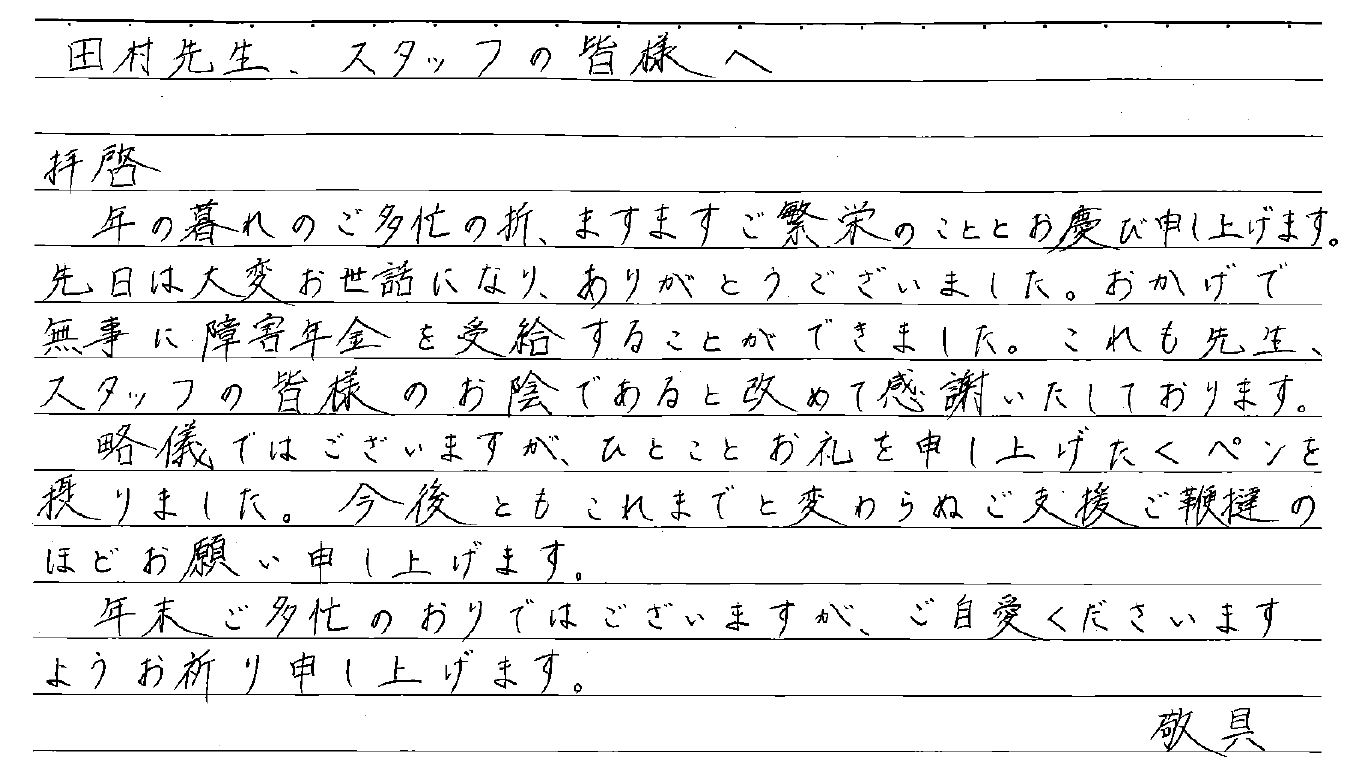 田村先生、スタッフの皆様へ
拝啓
年の暮れのご多忙の折、ますますご繁栄のこととお慶び申し上げます。
先日は大変お世話になり、ありがとうございました。おかげで
無事に障害年金を受給することができました。これも先生、
スタッフの皆様のお陰であると改めて感謝いたしております。
略儀ではございますが、ひとことお礼を申し上げたくペンを
摂りました。今後ともこれまでと変わらぬご支援ご鞭撻の
ほどお願い申し上げます。
年末ご多忙のおりではございますが、ご自愛くださいます
ようお祈り申し上げます。
敬具